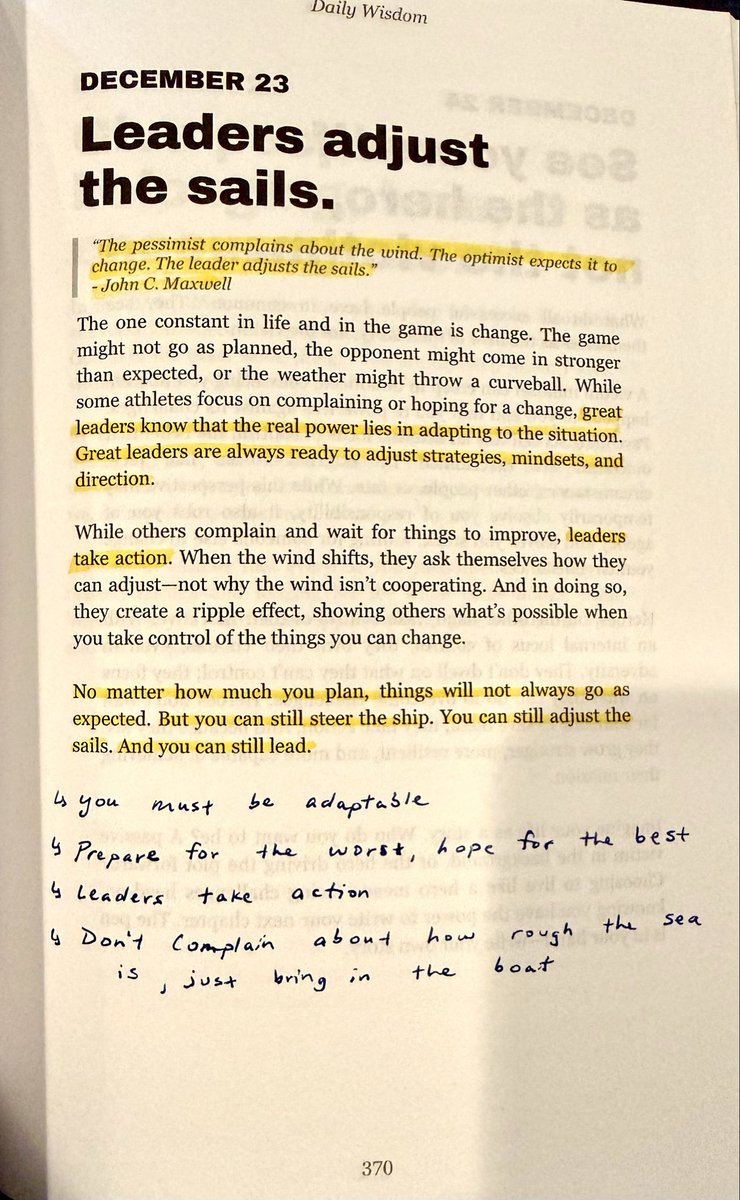 Daily Wisdom
DECEMBER 23
Leaders adjust
the sails.
“The pessimist complains about the wind. The optimist expects it to
change. The leader adjusts the sails.”
- John C. Maxwell
The one constant in life and in the game is change. The game
might not go as planned, the opponent might come in stronger
than expected, or the weather might throw a curveball. While
some athletes focus on complaining or hoping for a change, great
leaders know that the real power lies in adapting to the situation.
Great leaders are always ready to adjust strategies, mindsets, and
direction.
While others complain and wait for things to improve, leaders
take action. When the wind shifts, they ask themselves how they
can adjust—not why the wind isn’t cooperating. And in doing so,
they create a ripple effect, showing others what’s possible when
you take control of the things you can change.
No matter how much you plan, things will not always go as
expected. But you can still steer the ship. You can still adjust the
sails. And you can still lead.
↳ you must be adaptable
↳ Prepare for the worst, hope for the best
↳ Leaders take action
↳ Don't complain about how rough the sea
is, just bring in the boat
370